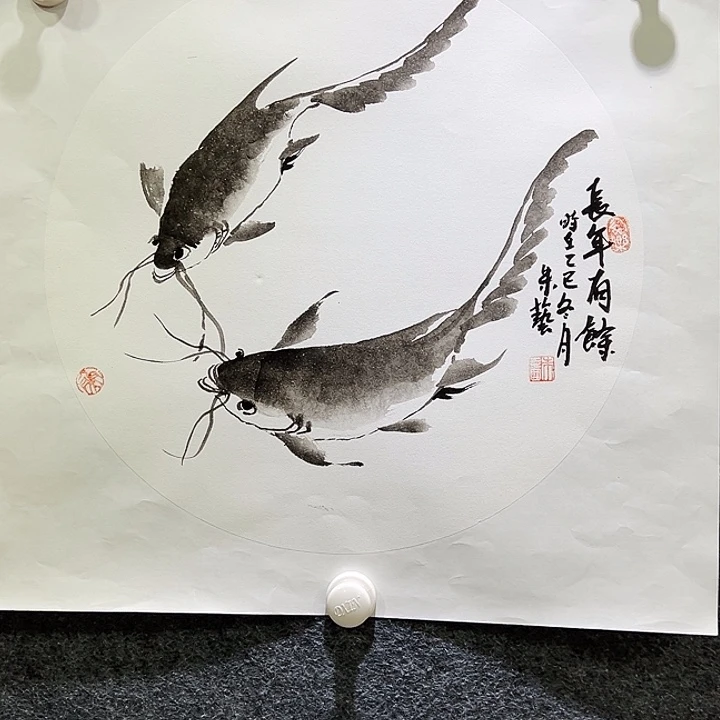 長年有餘
時在乙巳冬月
朱藝